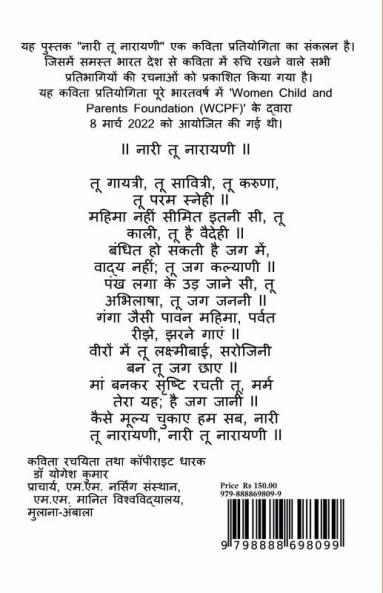 यह पुस्तक "नारी तू नारायणी" एक कविता प्रतियोगिता का संकलन है।
जिसमें समस्त भारत देश से कविता में रुचि रखने वाले सभी
प्रतिभागियों की रचनाओं को प्रकाशित किया गया है।
यह कविता प्रतियोगिता पूरे भारतवर्ष में 'Women Child and
Parents Foundation (WCPF)' के द्वारा
8 मार्च 2022 को आयोजित की गई थी।
॥ नारी तू नारायणी ॥
तू गायत्री, तू सावित्री, तू करुणा,
तू परम स्नेही ॥
महिमा नहीं सीमित इतनी सी, तू
काली, तू है वैदेही ॥
बंधित हो सकती है जग में,
वाद्य नहीं; तू जग कल्याणी ॥
पंख लगा के उड़ जाने सी, तू
अभिलाषा, तू जग जननी ॥
गंगा जैसी पावन महिमा, पर्वत
रीझे, झरने गाएं ॥
वीरों में तू लक्ष्मीबाई, सरोजिनी
बन तू जग छाए ॥
मां बनकर सृष्टि रचती तू, मर्म
तेरा यह; है जग जानी ॥
कैसे मूल्य चुकाए हम सब, नारी
तू नारायणी, नारी तू नारायणी ॥
कविता रचयिता तथा कॉपीराइट धारक
डॉ योगेश कुमार
प्राचार्य, एम.एम. नर्सिंग संस्थान,
एम.एम. मानित विश्वविद्यालय,
मुलाना-अंबाला
Price Rs 150.00
979-888869809-9
9 798888 698099